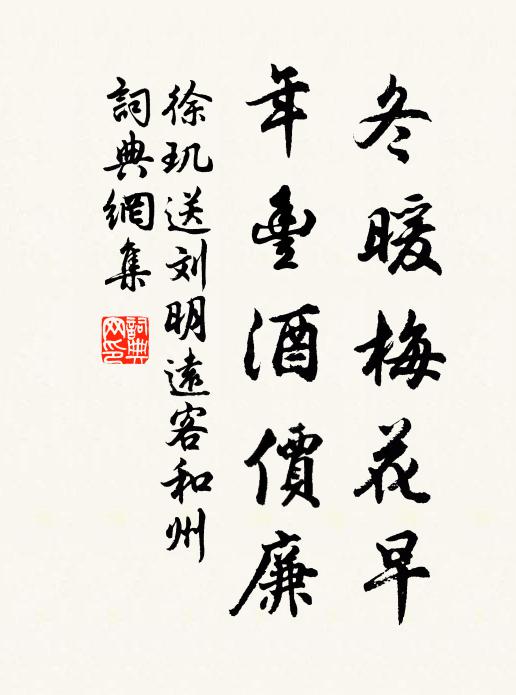 冬暖梅花早
年豊酒價廉
徐玑送刘明遠客和州
詞典網集
詞典网印